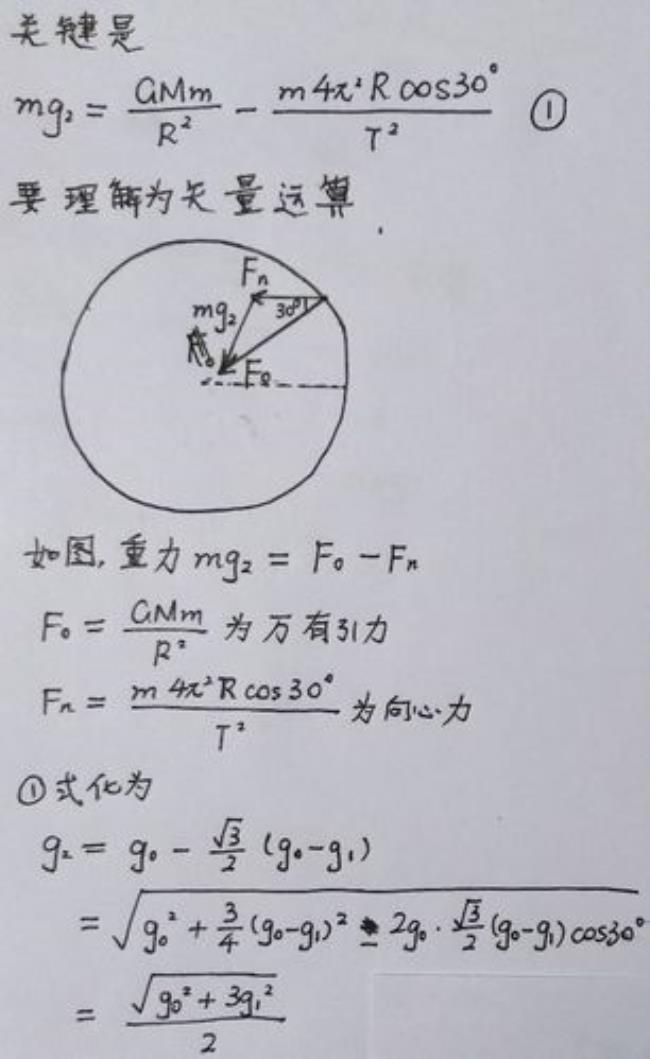 关键是
mg₂ = GMm/R² - m4π²Rcos30°/T² ①
要理解为矢量运算.
Fn
mg₂
30°
F₀
如图,重力 mg₂ = F₀ - Fn
F₀ = GMm/R² 为万有引力
Fn = m4π²Rcos30°/T² 为向心力
①式化为
g₂ = g₀ - √3/2 (g₀-g₁)
= √(g₀² + 3/4(g₀-g₁)² - 2g₀·√3/2(g₀-g₁)cos30°)
= √(g₀²+3g₁²)/2